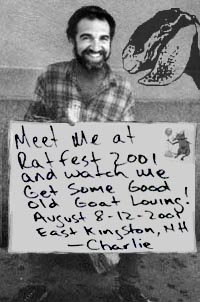 Meet Me at
Ratfest 2001
and watch me
Get Some Good
old Goat Loving!
August 8-12-2001
East Kingston, NH
—Charlie